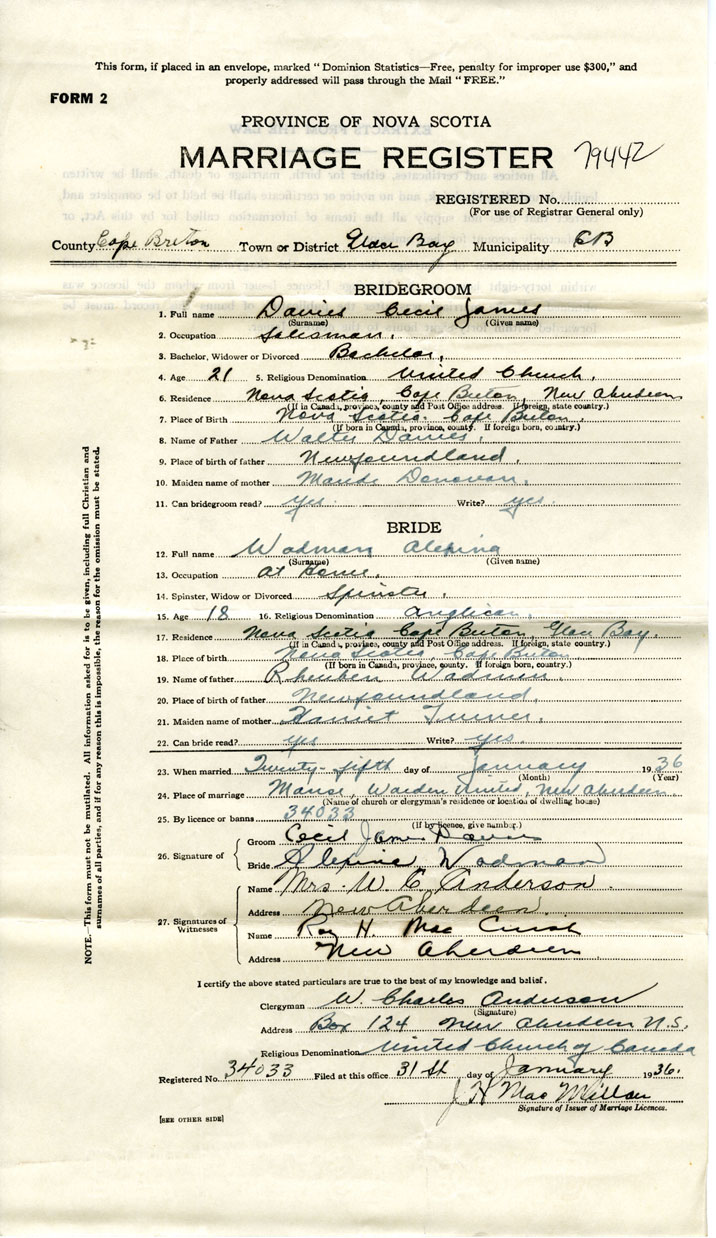 This form, if placed in an envelope, marked "Dominion Statistics—Free, penalty for improper use $300," and
properly addressed will pass through the Mail "FREE."
FORM 2
PROVINCE OF NOVA SCOTIA
MARRIAGE REGISTER 79442
REGISTERED No.
(For use of Registrar General only)
County Cape Breton Town or District Glace Bay Municipality CB
BRIDEGROOM
1. Full name Davies Cecil James
(Surname) (Given name)
2. Occupation Salesman.
3. Bachelor, Widower or Divorced Bachelor.
4. Age 21 5. Religious Denomination United Church.
6. Residence Nova Scotia, Cape Breton, New Aberdeen
(If in Canada, province, county and Post Office address. If foreign, state country.)
7. Place of Birth Nova Scotia. Cape Breton.
(If born in Canada, province, county. If foreign born, country.)
8. Name of Father Walter Davies.
9. Place of birth of father Newfoundland
10. Maiden name of mother Maude Donovan.
11. Can bridegroom read? yes. Write? yes.
BRIDE
12. Full name Wadman Alepina
(Surname) (Given name)
13. Occupation At Home.
14. Spinster, Widow or Divorced Spinster.
15. Age 18 16. Religious Denomination Anglican.
17. Residence Nova Scotia Cape Breton, Glace Bay.
(If in Canada, province, county and Post Office address. If foreign, state country.)
18. Place of birth Nova Scotia, Cape Breton
(If born in Canada, province, county. If foreign born, country.)
19. Name of father Rheuben Wadman
20. Place of birth of father Newfoundland.
21. Maiden name of mother Harriet Turner.
22. Can bride read? yes Write? yes.
23. When married Twenty-fifth day of January 1936
(Month) (Year)
24. Place of marriage Manse, Warden United, New Aberdeen.
(Name of church or clergyman's residence or location of dwelling house)
25. By licence or banns 34033
(If by licence, give number.)
26. Signature of
Groom Cecil James Davies
Bride Alepina Wadman
27. Signatures of Witnesses
Name Mrs. W. C. Anderson.
Address New Aberdeen.
Name Roy H. Mac
Address New Aberdeen
I certify the above stated particulars are true to the best of my knowledge and belief.
Clergyman W. Charles Anderson
(Signature)
Address Box 124 New Aberdeen N.S.
Religious Denomination United Church of Canada
Registered No. 34033 Filed at this office 31st day of January 1936.
J H MacMillan
Signature of Issuer of Marriage Licences.
[SEE OTHER SIDE]
NOTE.—This form must not be mutilated. All information asked for is to be given, including full Christian and
surnames of all parties, and if for any reason this is impossible, the reason for the omission must be stated.